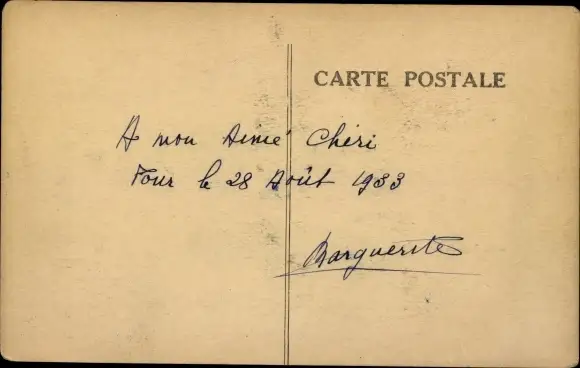 CARTE POSTALE
A mon Aimé Chéri
Pour le 28 Août 1933
Marguerite